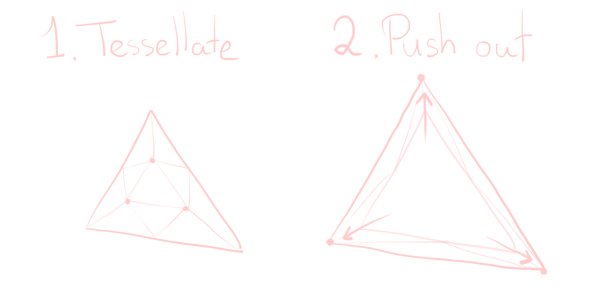 1. Tessellate
2. Push out